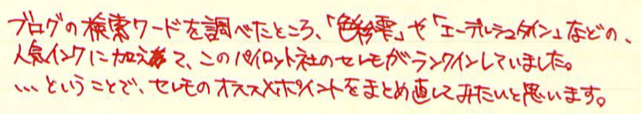 ブログの検索ワードを調べたところ、「色彩雫」や「エーデルシュタイン」などの、
人気インクに加えて、このパイロット社のセレモがランクインしていました。
…ということで、セレモのオススメポイントをまとめ直してみたいと思います。